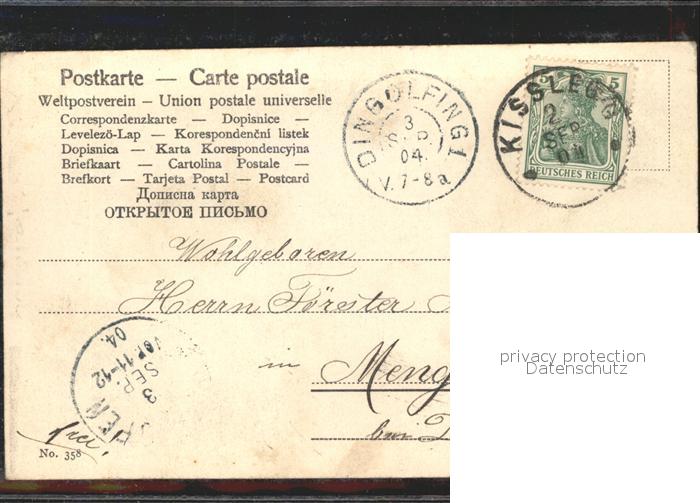 Postkarte — Carte postale
Weltpostverein – Union postale universelle
Correspondenzkarte — Dopisnice —
Levelező-Lap — Korespondenční listek
Dopisnica — Karta Korespondencyjna
Briefkaart — Cartolina Postale —
Brefkort — Tarjeta Postal — Postcard
Дописна карта
ОТКРЫТОЕ ПИСЬМО
DINGOLFING I
3
SEP.
04.
V. 7-8a
KISSLEGG
2
SEP
04
5
DEUTSCHES REICH
Wohlgeboren
Herrn Förster
in
Meng
04.
VOR. 11-12
SEP.
3
FEN
frei!
bei
No. 358
privacy protection
Datenschutz